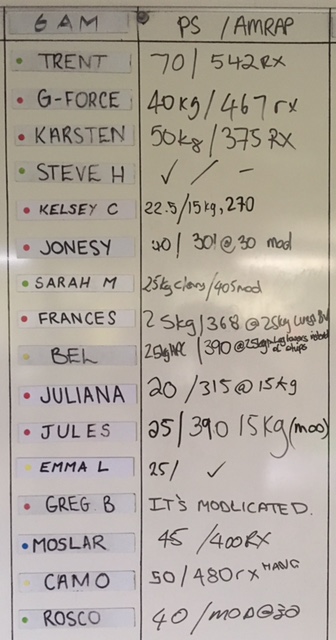 6AM PS / AMRAP
TRENT 70 / 542 RX
G-FORCE 40kg / 467 rx
KARSTEN 50kg / 375 RX
STEVE H ✓ / -
KELSEY C 22.5/15kg, 270
JONESY 40 / 301 @ 30 mod
SARAH M 25kg / 405mod
FRANCES 25kg / 368 @ 25kg
BEL 25kg / 390 @ 25kg
JULIANA 20 / 315 @ 15kg
JULES 25 / 390 15kg (mod)
EMMA L 25 / ✓
GREG B IT'S MODLICATED.
MOSLAR 45 / 400RX
CAMO 50 / 480rx HANG
ROSCO 40 / MOD@30